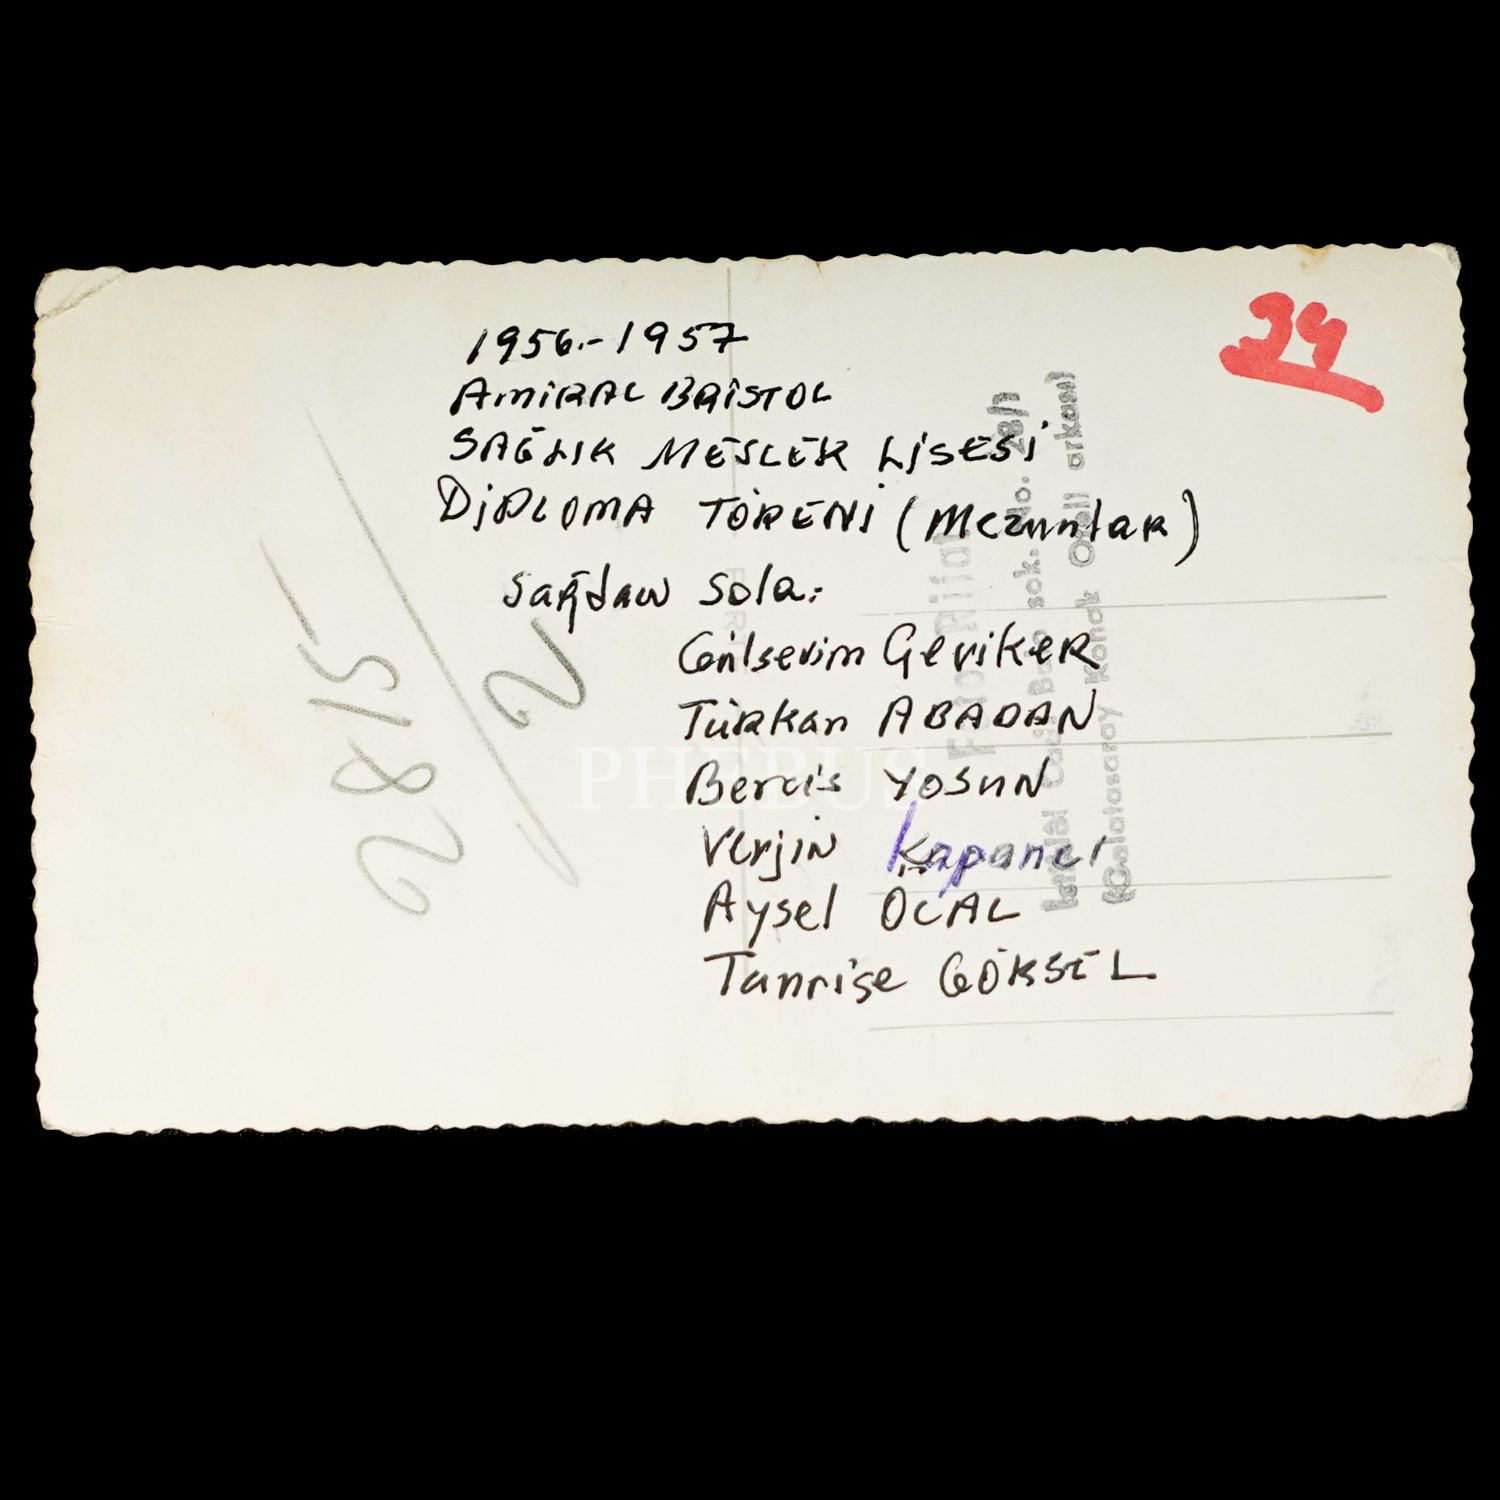 34
1956-1957
AMİRAL BRİSTOL
SAĞLIK MESLEK LİSESİ
DİPLOMA TÖRENİ (Mezunlar)
Sağdan Sola:
Gülsevim GeviKER
Türkan ABADAN
Bercis YOSUN
Verjin Kapancı
Aysel ÖCAL
Tanrişe GÖKSEL
2815/2
Foto Rifat
İstiklâl Cad. sok. No. 28/1
(Galatasaray Konak Oteli arkası)
PHEBUS